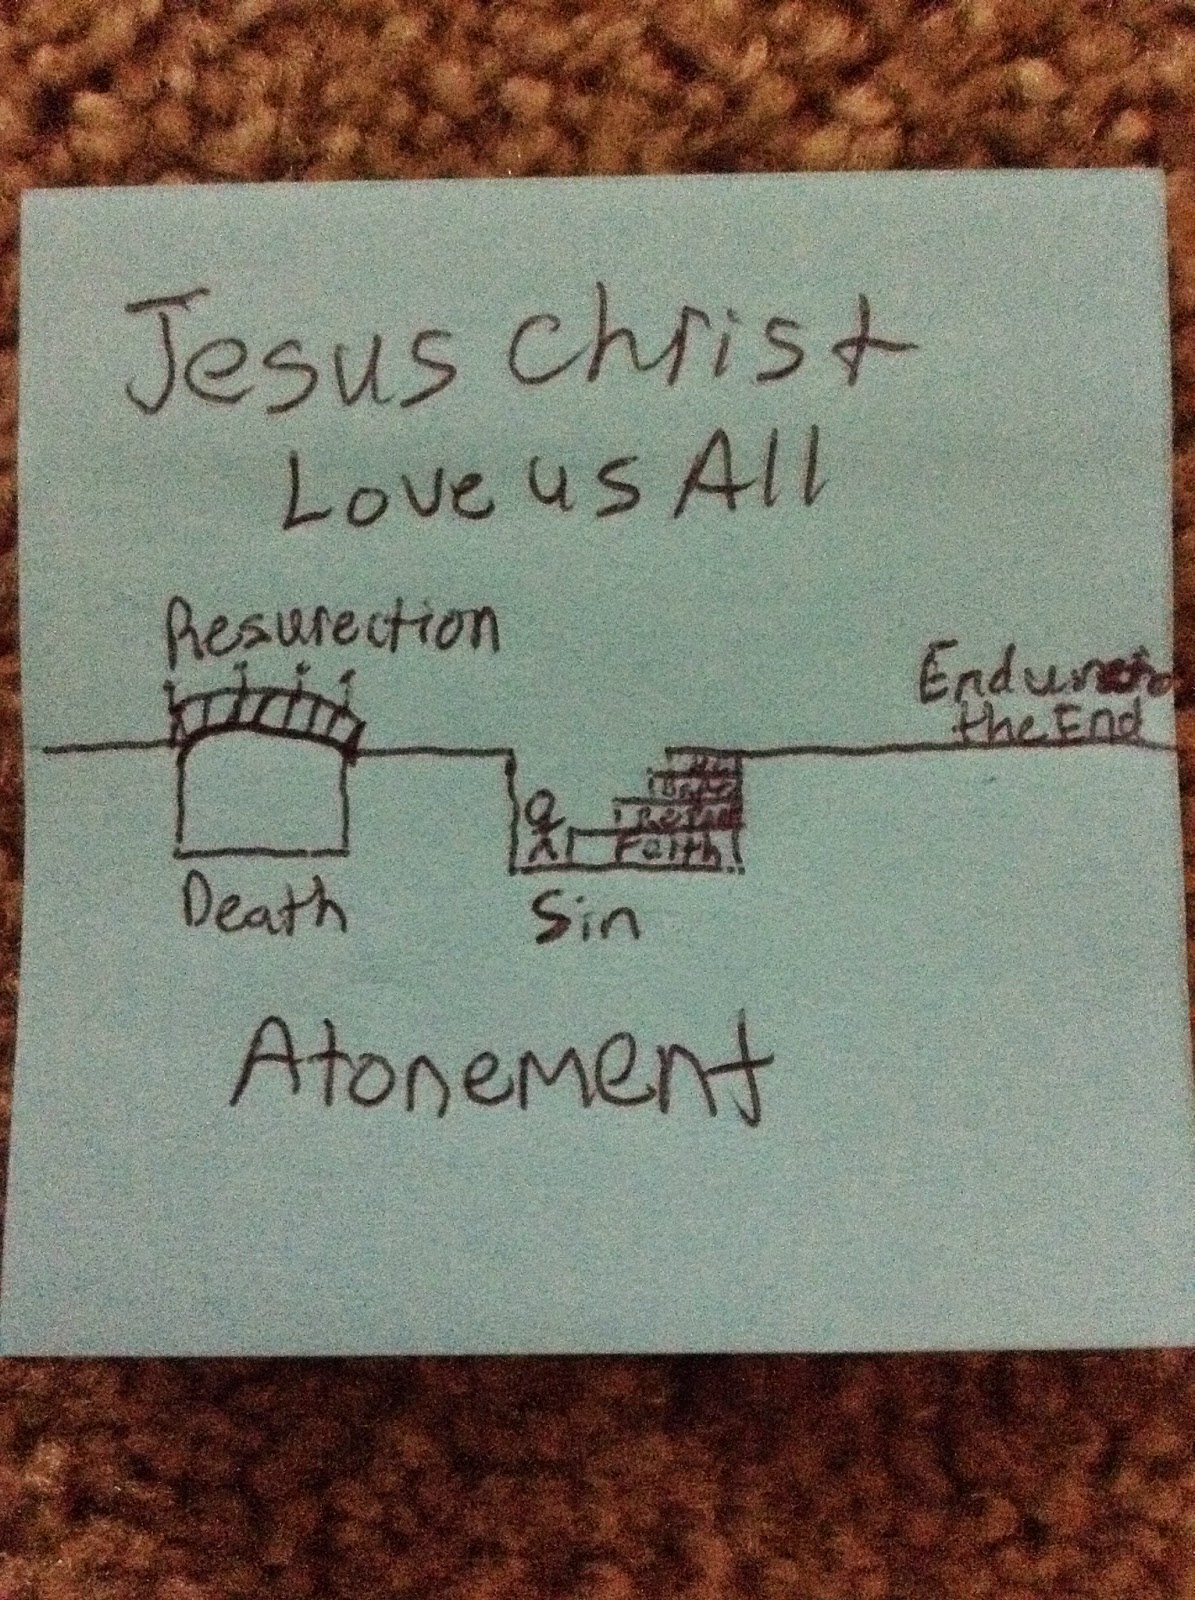 Jesus Christ
Love us All
Resurection
Endure to
the End
Faith
Death
Sin
Atonement